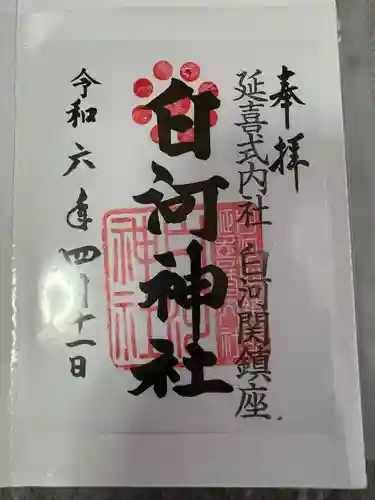 奉拝
延喜式内社 白河関鎮座
白河神社
令和六年四月十一日